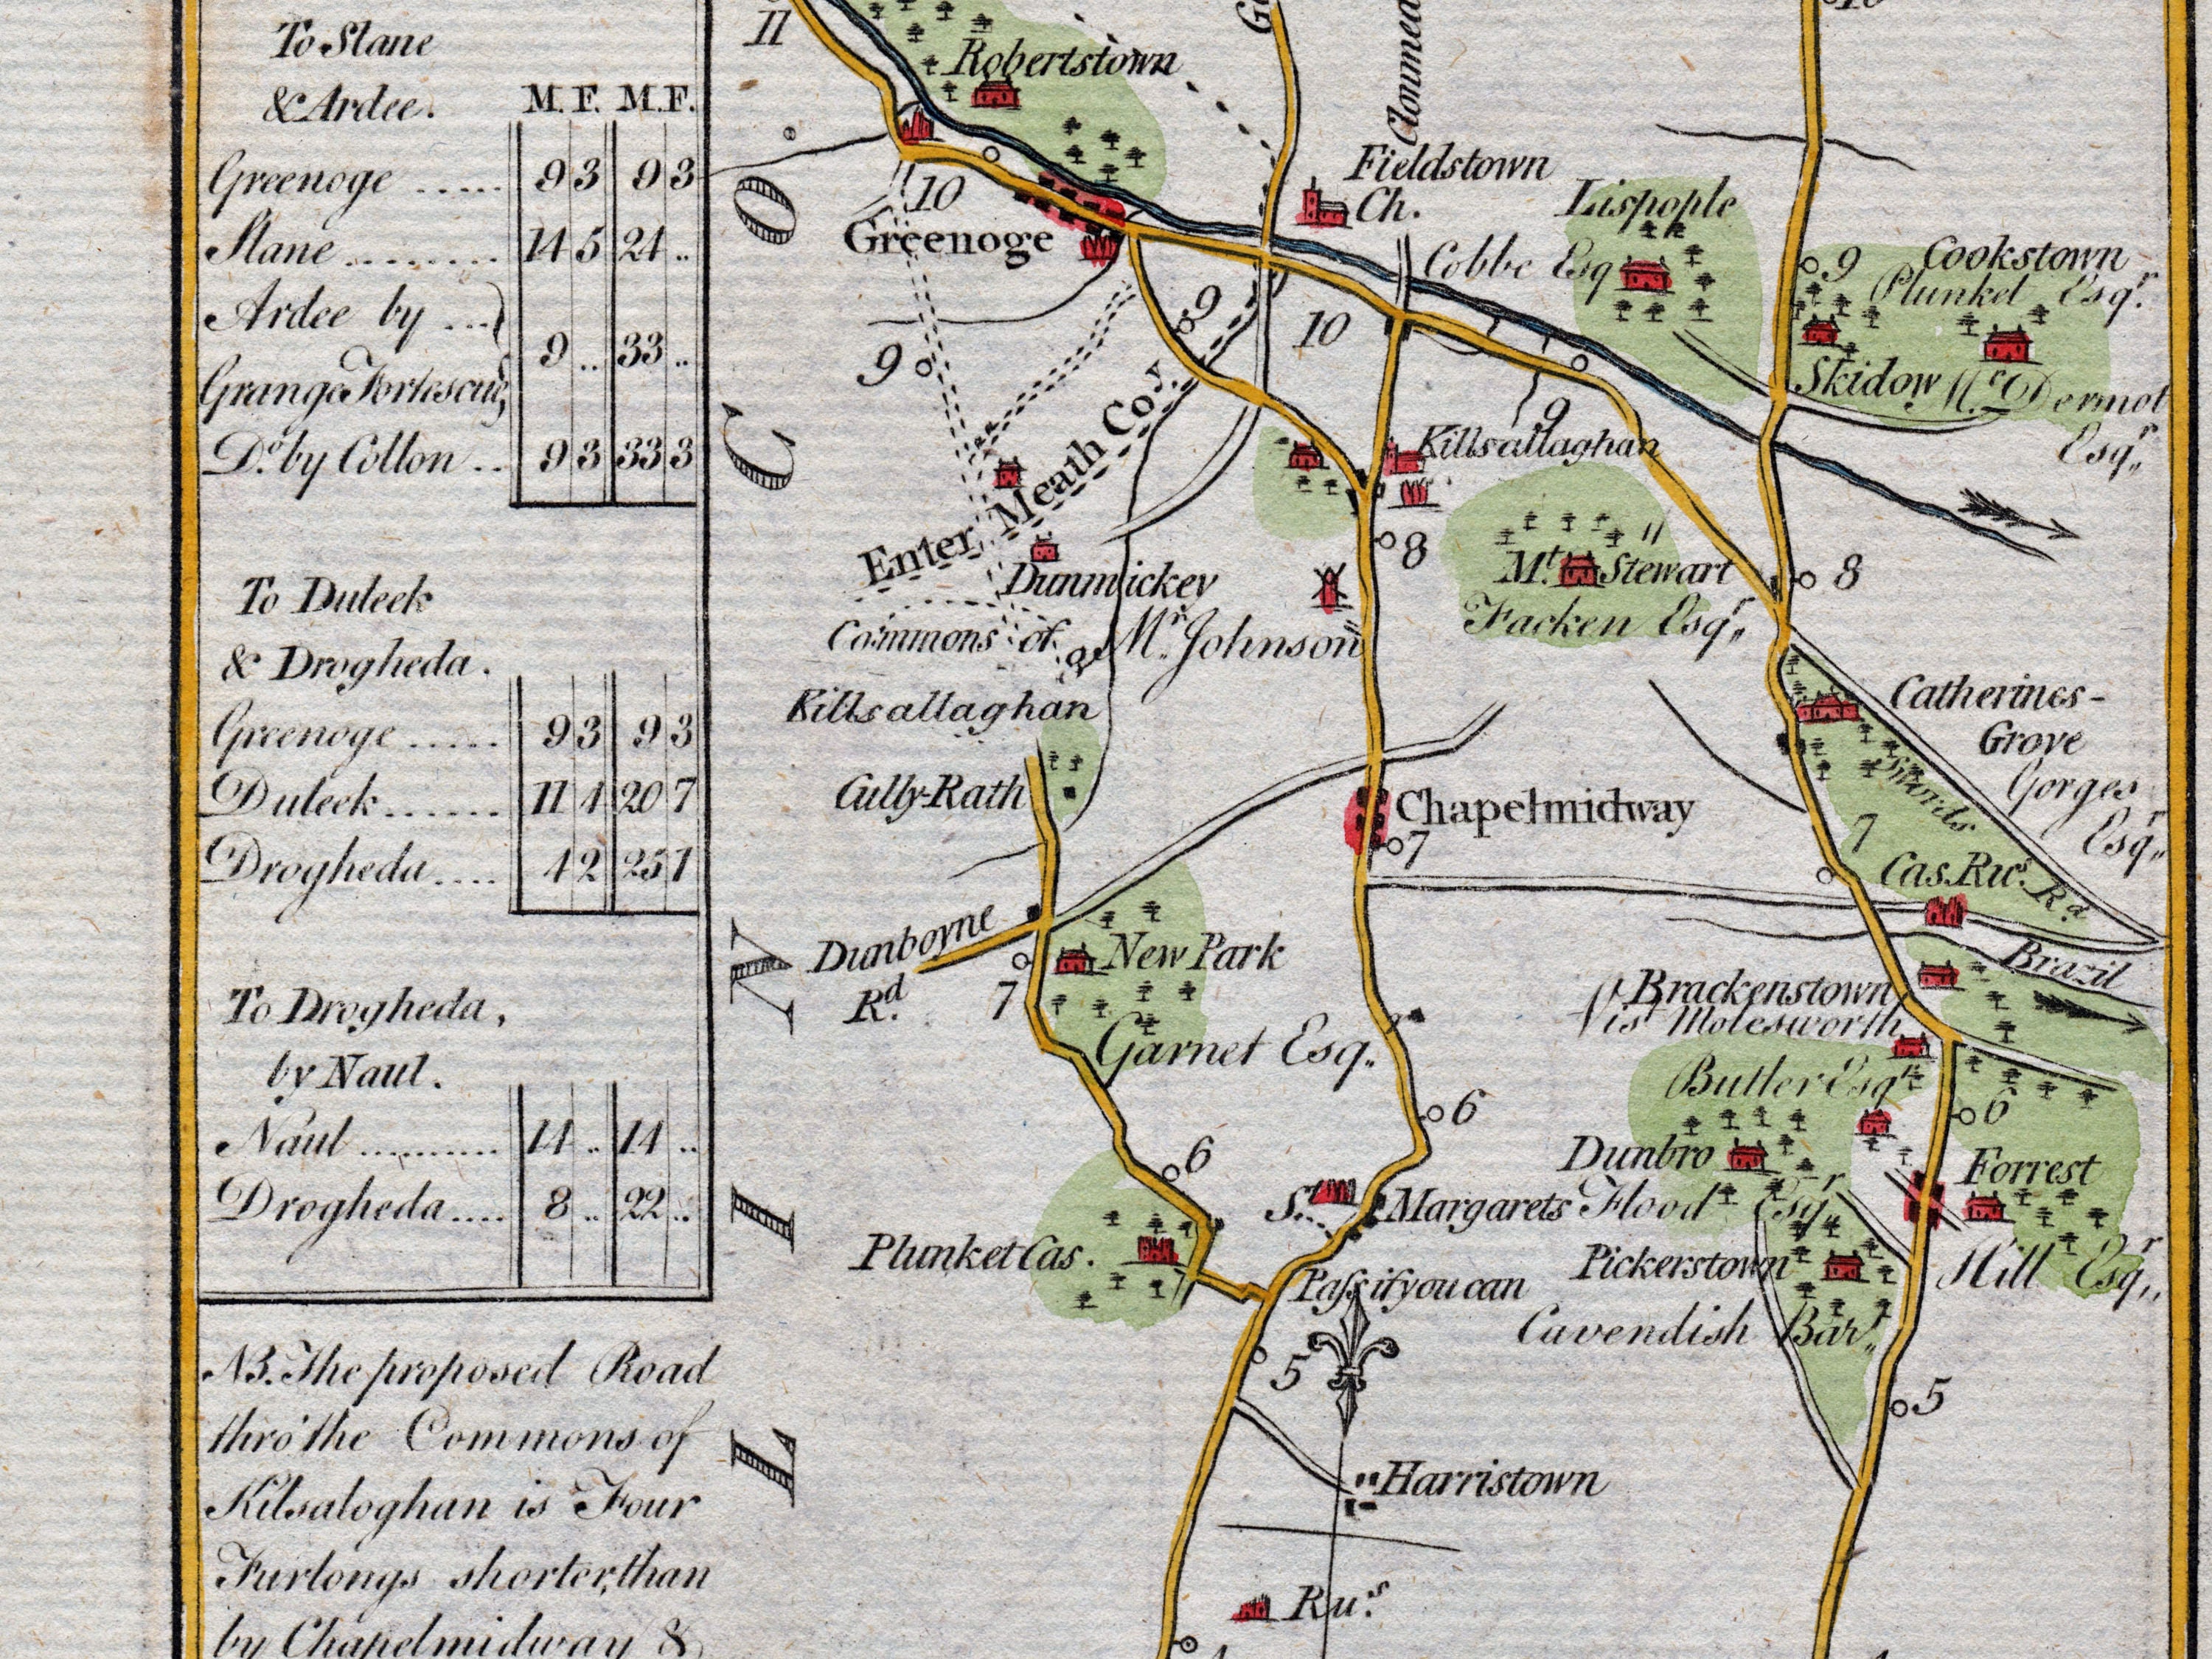 To Slane
& Ardee. M. F. M. F.
Greenoge ..... 9 3 9 3
Slane ........ 14 5 24 ..
Ardee by ...
Grange Fortescue 9 .. 33 ..
Do. by Collon .. 9 3 33 3
To Duleek
& Drogheda.
Greenoge ..... 9 3 9 3
Duleek ...... 11 4 20 7
Drogheda .... 4 2 25 1
To Drogheda,
by Naul.
Naul .......... 14 .. 14 ..
Drogheda .... 8 .. 22 ..
NB. The proposed Road
thro' the Commons of
Kilsaloghan is Four
Furlongs shorter, than
by Chapelmidway &
11
Robertstown
10
Greenoge
Fieldstown
Ch.
Lispople
Cobbe Esq
9
Cookstown
Plunket Esqr.
Skidow
Mc. Dermot
Esqr.,
9
9
10
9
Killsallaghan
Enter Meath Coy.
8
Mt. Stewart
Facken Esqr.,
8
Dunmickey
Mr. Johnson
Commons of
Killsallaghan
Catherines-
Grove
Gorges
Esqr.,
Swords
Rd
Cully-Rath
Chapelmidway
7
7
Cas. Rus.
Dunboyne
Rd.
New Park
7
Garnet Esq.,
Brazil
Brackenstown
Vist. Molesworth
Butler Esqr.
6
6
6
Dunbro
Flood Esqr.
Forrest
Hill Esqr.,
St. Margarets
Plunket Cas.
Pass if you can
Pickerstown
Cavendish Bart.,
5
5
Harristown
Rus.
C O
N
I
L